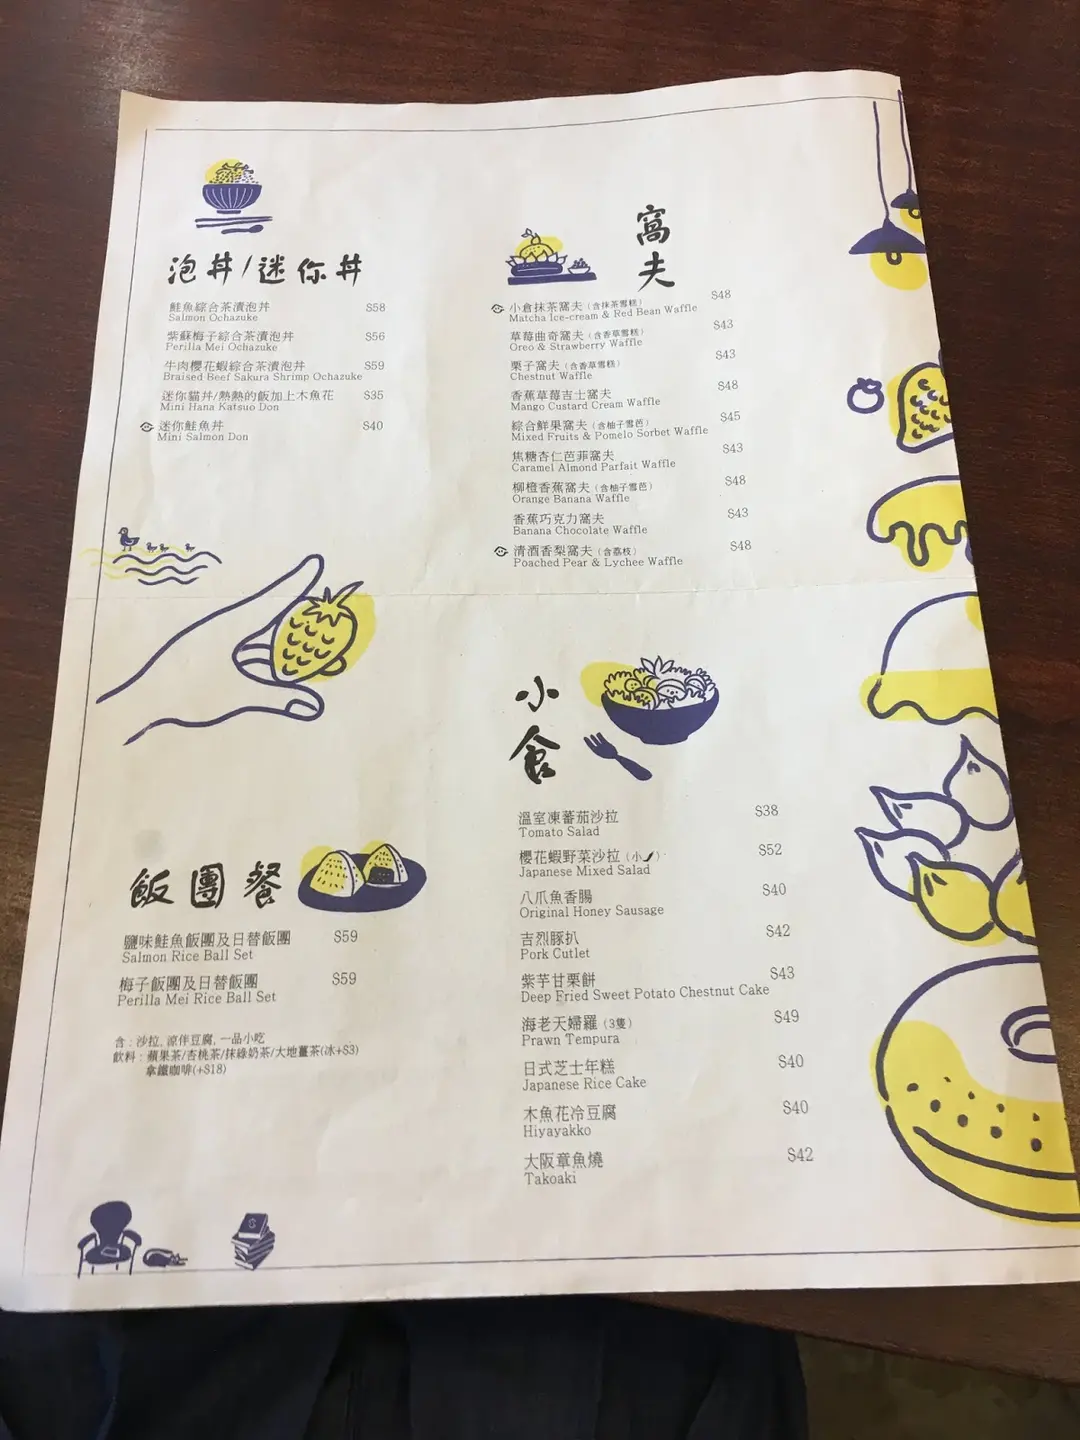 泡丼/迷你丼
鮭魚綜合茶漬泡丼 $58
Salmon Ochazuke
紫蘇梅子綜合茶漬泡丼 $56
Perilla Mei Ochazuke
牛肉櫻花蝦綜合茶漬泡丼 $59
Braised Beef Sakura Shrimp Ochazuke
迷你貓丼/熱熱的飯加上木魚花 $35
Mini Hana Katsuo Don
迷你鮭魚丼 $40
Mini Salmon Don
窩夫
小倉抹茶窩夫 (含抹茶雪糕) $48
Matcha Ice-cream & Red Bean Waffle
草莓曲奇窩夫 (含香草雪糕) $43
Oreo & Strawberry Waffle
栗子窩夫 (含香草雪糕) $43
Chestnut Waffle
香蕉草莓吉士窩夫 $48
Mango Custard Cream Waffle
綜合鮮果窩夫 (含柚子雪芭) $45
Mixed Fruits & Pomelo Sorbet Waffle
焦糖杏仁芭菲窩夫 $43
Caramel Almond Parfait Waffle
柳橙香蕉窩夫 (含柚子雪芭) $48
Orange Banana Waffle
香蕉巧克力窩夫 $43
Banana Chocolate Waffle
清酒香梨窩夫 (含荔枝) $48
Poached Pear & Lychee Waffle
飯團餐
鹽味鮭魚飯團及日替飯團 $59
Salmon Rice Ball Set
梅子飯團及日替飯團 $59
Perilla Mei Rice Ball Set
含 : 沙拉, 涼伴豆腐, 一品小吃
飲料 : 蘋果茶/杏桃茶/抹綠奶茶/大地薑茶(冰+$3)
拿鐵咖啡(+$18)
小食
溫室凍蕃茄沙拉 $38
Tomato Salad
櫻花蝦野菜沙拉 (小) $52
Japanese Mixed Salad
八爪魚香腸 $40
Original Honey Sausage
吉烈豚扒 $42
Pork Cutlet
紫芋甘栗餅 $43
Deep Fried Sweet Potato Chestnut Cake
海老天婦羅 (3隻) $49
Prawn Tempura
日式芝士年糕 $40
Japanese Rice Cake
木魚花冷豆腐 $40
Hiyayakko
大阪章魚燒 $42
Takoaki